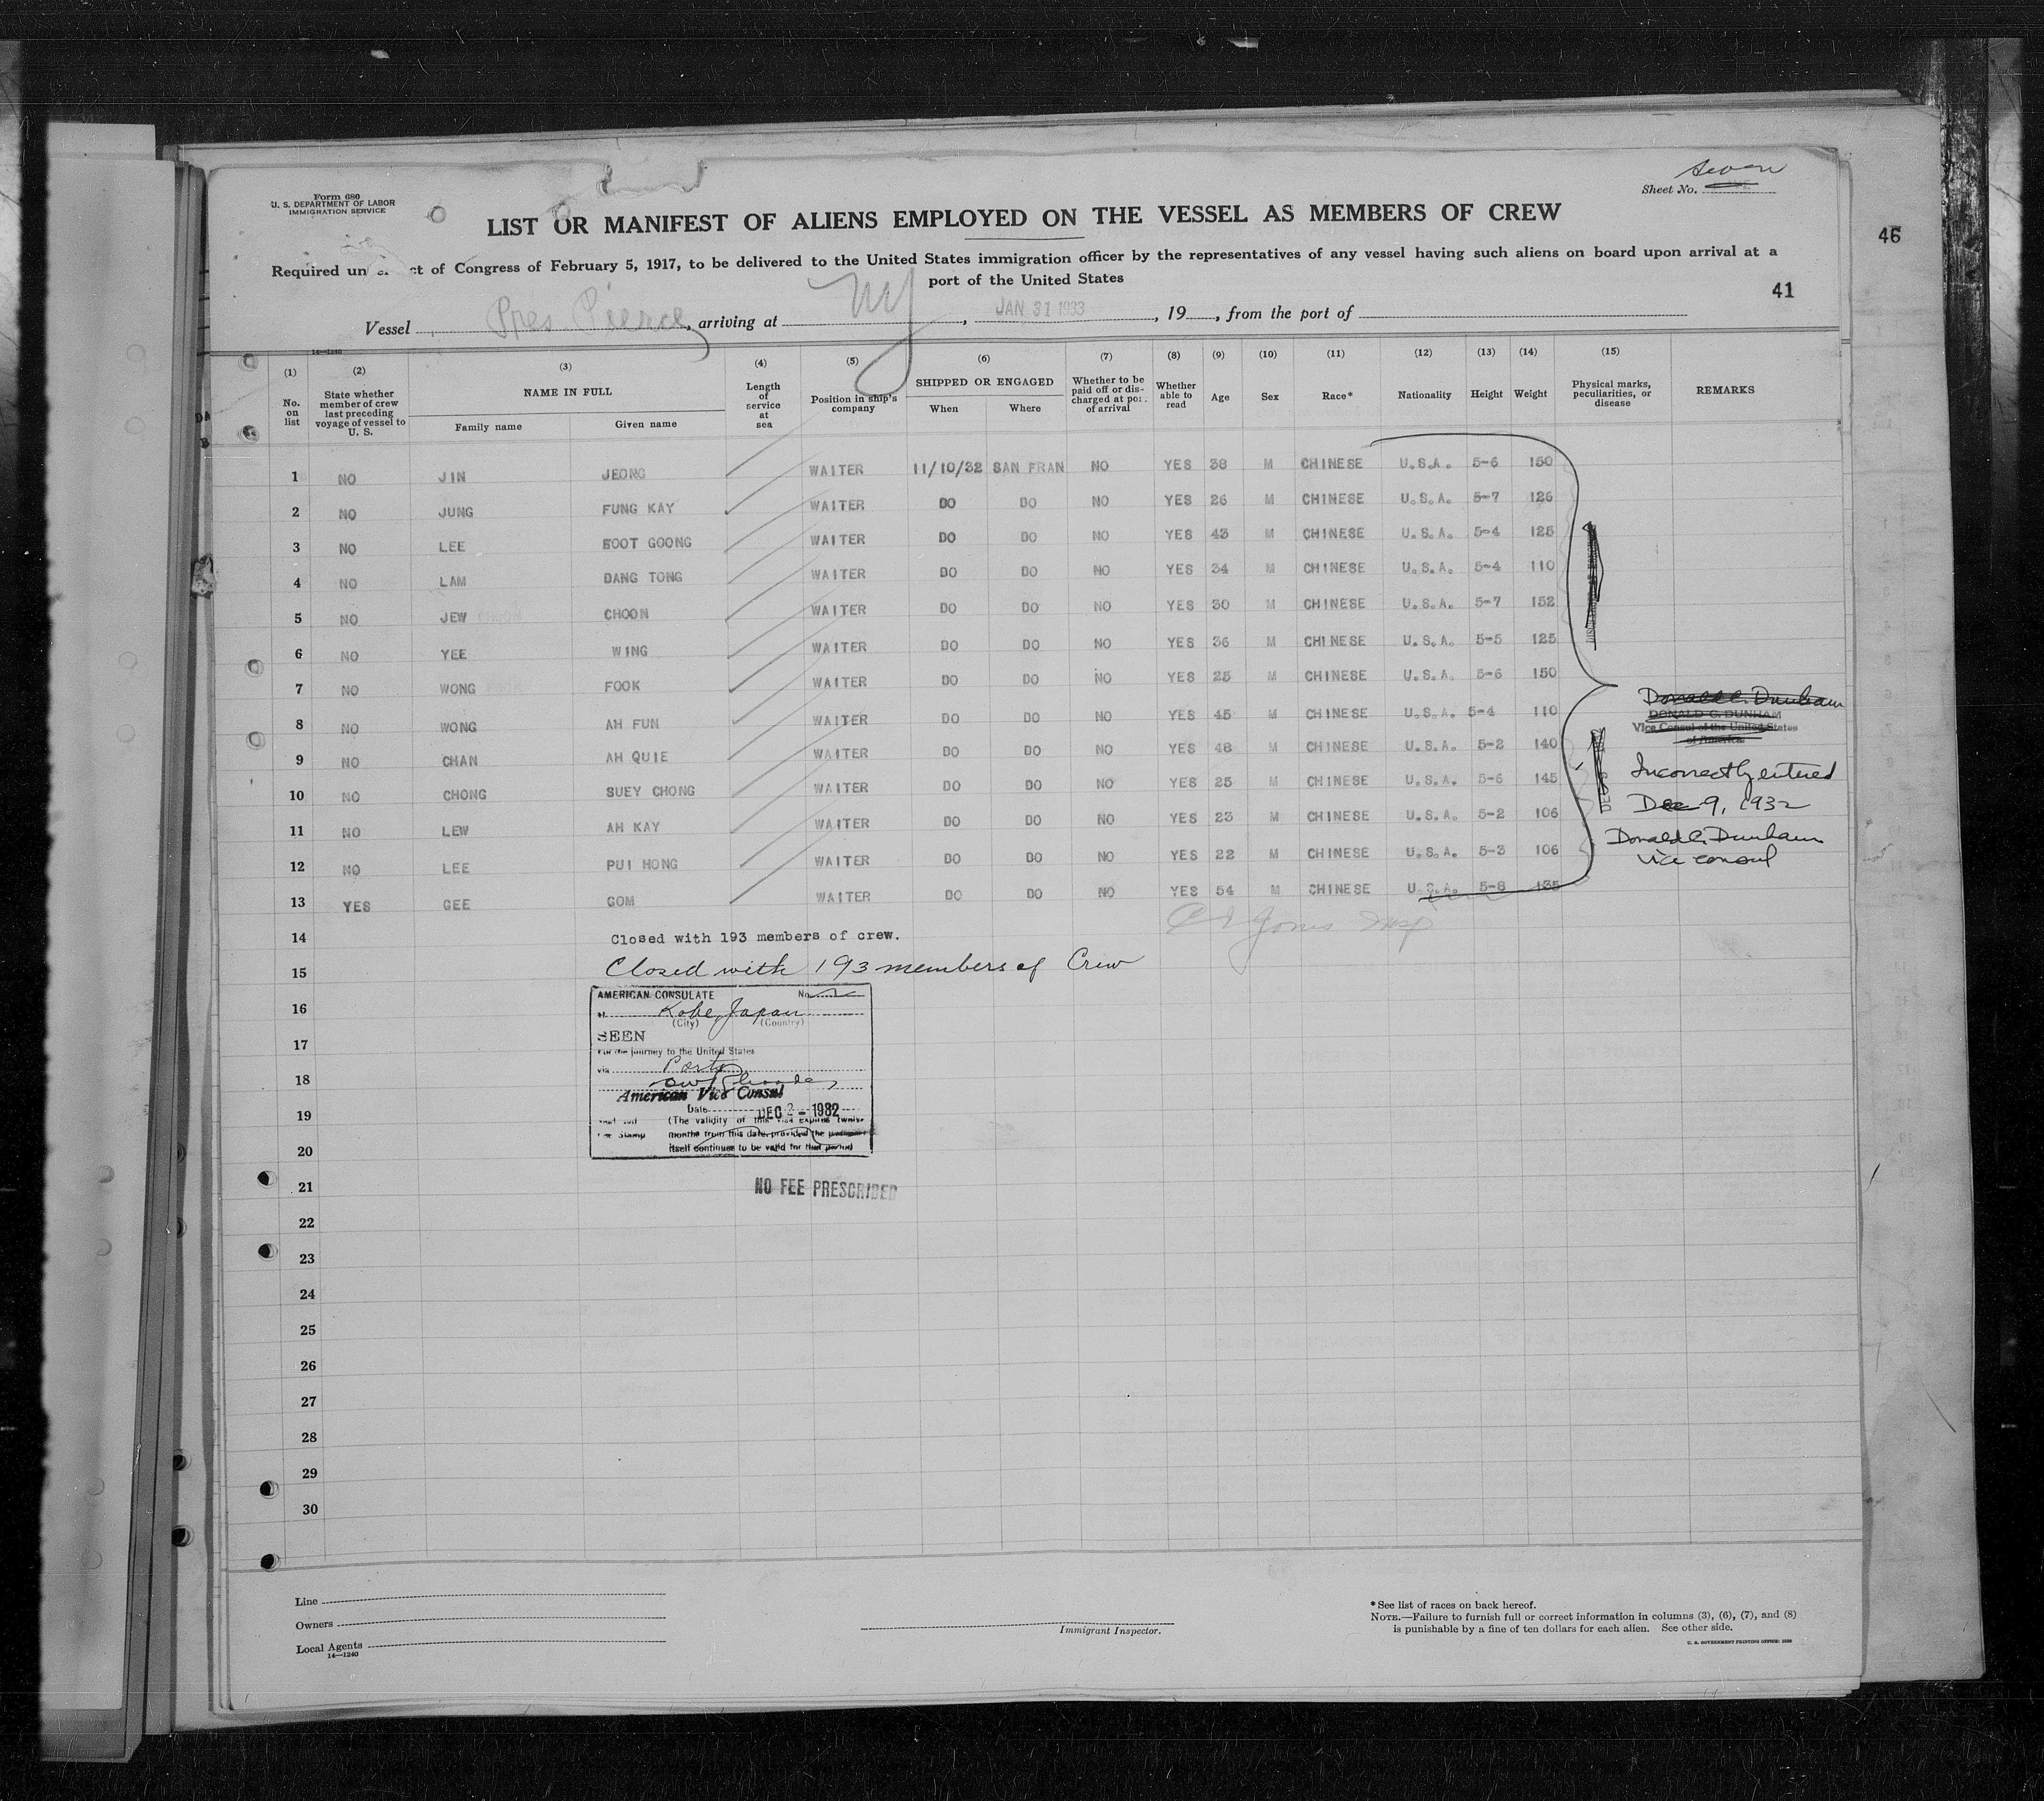 Form 680
U. S. DEPARTMENT OF LABOR
IMMIGRATION SERVICE
Seven
Sheet No.
LIST OR MANIFEST OF ALIENS EMPLOYED ON THE VESSEL AS MEMBERS OF CREW
46
Required un ct of Congress of February 5, 1917, to be delivered to the United States immigration officer by the representatives of any vessel having such aliens on board upon arrival at a
port of the United States
41
Vessel Pres. Pierce, arriving at NY, JAN 31 1933, 19, from the port of
14—1240
(1) (2) (3) (4) (5) (6) (7) (8) (9) (10) (11) (12) (13) (14) (15)
No. on list
State whether member of crew last preceding voyage of vessel to U. S.
NAME IN FULL
Family name Given name
Length of service at sea
Position in ship's company
SHIPPED OR ENGAGED
When Where
Whether to be paid off or discharged at port of arrival
Whether able to read
Age Sex Race* Nationality Height Weight
Physical marks, peculiarities, or disease
REMARKS
1 NO JIN JEONG WAITER 11/10/32 SAN FRAN NO YES 38 M CHINESE U.S.A. 5-6 150
2 NO JUNG FUNG KAY WAITER DO DO NO YES 26 M CHINESE U.S.A. 5-7 126
3 NO LEE FOOT GOONG WAITER DO DO NO YES 43 M CHINESE U.S.A. 5-4 125
4 NO LAM DANG TONG WAITER DO DO NO YES 34 M CHINESE U.S.A. 5-4 110
5 NO JEW CHOON WAITER DO DO NO YES 30 M CHINESE U.S.A. 5-7 152
6 NO YEE WING WAITER DO DO NO YES 36 M CHINESE U.S.A. 5-5 125
7 NO WONG FOOK WAITER DO DO NO YES 25 M CHINESE U.S.A. 5-6 150
8 NO WONG AH FUN WAITER DO DO NO YES 45 M CHINESE U.S.A. 5-4 110
9 NO CHAN AH QUIE WAITER DO DO NO YES 48 M CHINESE U.S.A. 5-2 140
10 NO CHONG SUEY CHONG WAITER DO DO NO YES 25 M CHINESE U.S.A. 5-6 145
11 NO LEW AH KAY WAITER DO DO NO YES 23 M CHINESE U.S.A. 5-2 106
12 NO LEE PUI HONG WAITER DO DO NO YES 22 M CHINESE U.S.A. 5-3 106
13 YES GEE GOM WAITER DO DO NO YES 54 M CHINESE U.S.A. 5-8 135
Donald C. Dunham
DONALD C. DUNHAM
Vice Consul of the United States
of America
Incorrectly entered
Dec 9, 1932
Donald C. Dunham
Vice consul
Jones Insp
14 Closed with 193 members of crew.
15 Closed with 193 members of Crew
16
17
18
19
20
21
22
23
24
25
26
27
28
29
30
AMERICAN CONSULATE No.
at Kobe, Japan
(City) (Country)
SEEN
For the journey to the United States
via Ports
American Vice Consul
Date DEC 2 - 1932
(The validity of this visa expires twelve
Fee Stamp months from this date, provided the passport
itself continues to be valid for that period)
NO FEE PRESCRIBED
Line
Owners
Local Agents
14—1240
Immigrant Inspector.
*See list of races on back hereof.
NOTE.—Failure to furnish full or correct information in columns (3), (6), (7), and (8)
is punishable by a fine of ten dollars for each alien. See other side.
U. S. GOVERNMENT PRINTING OFFICE: